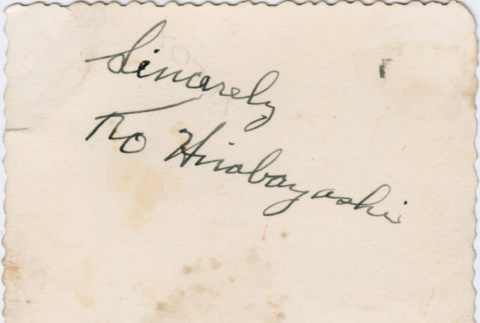 Sincerely
Ko Hirabayashi